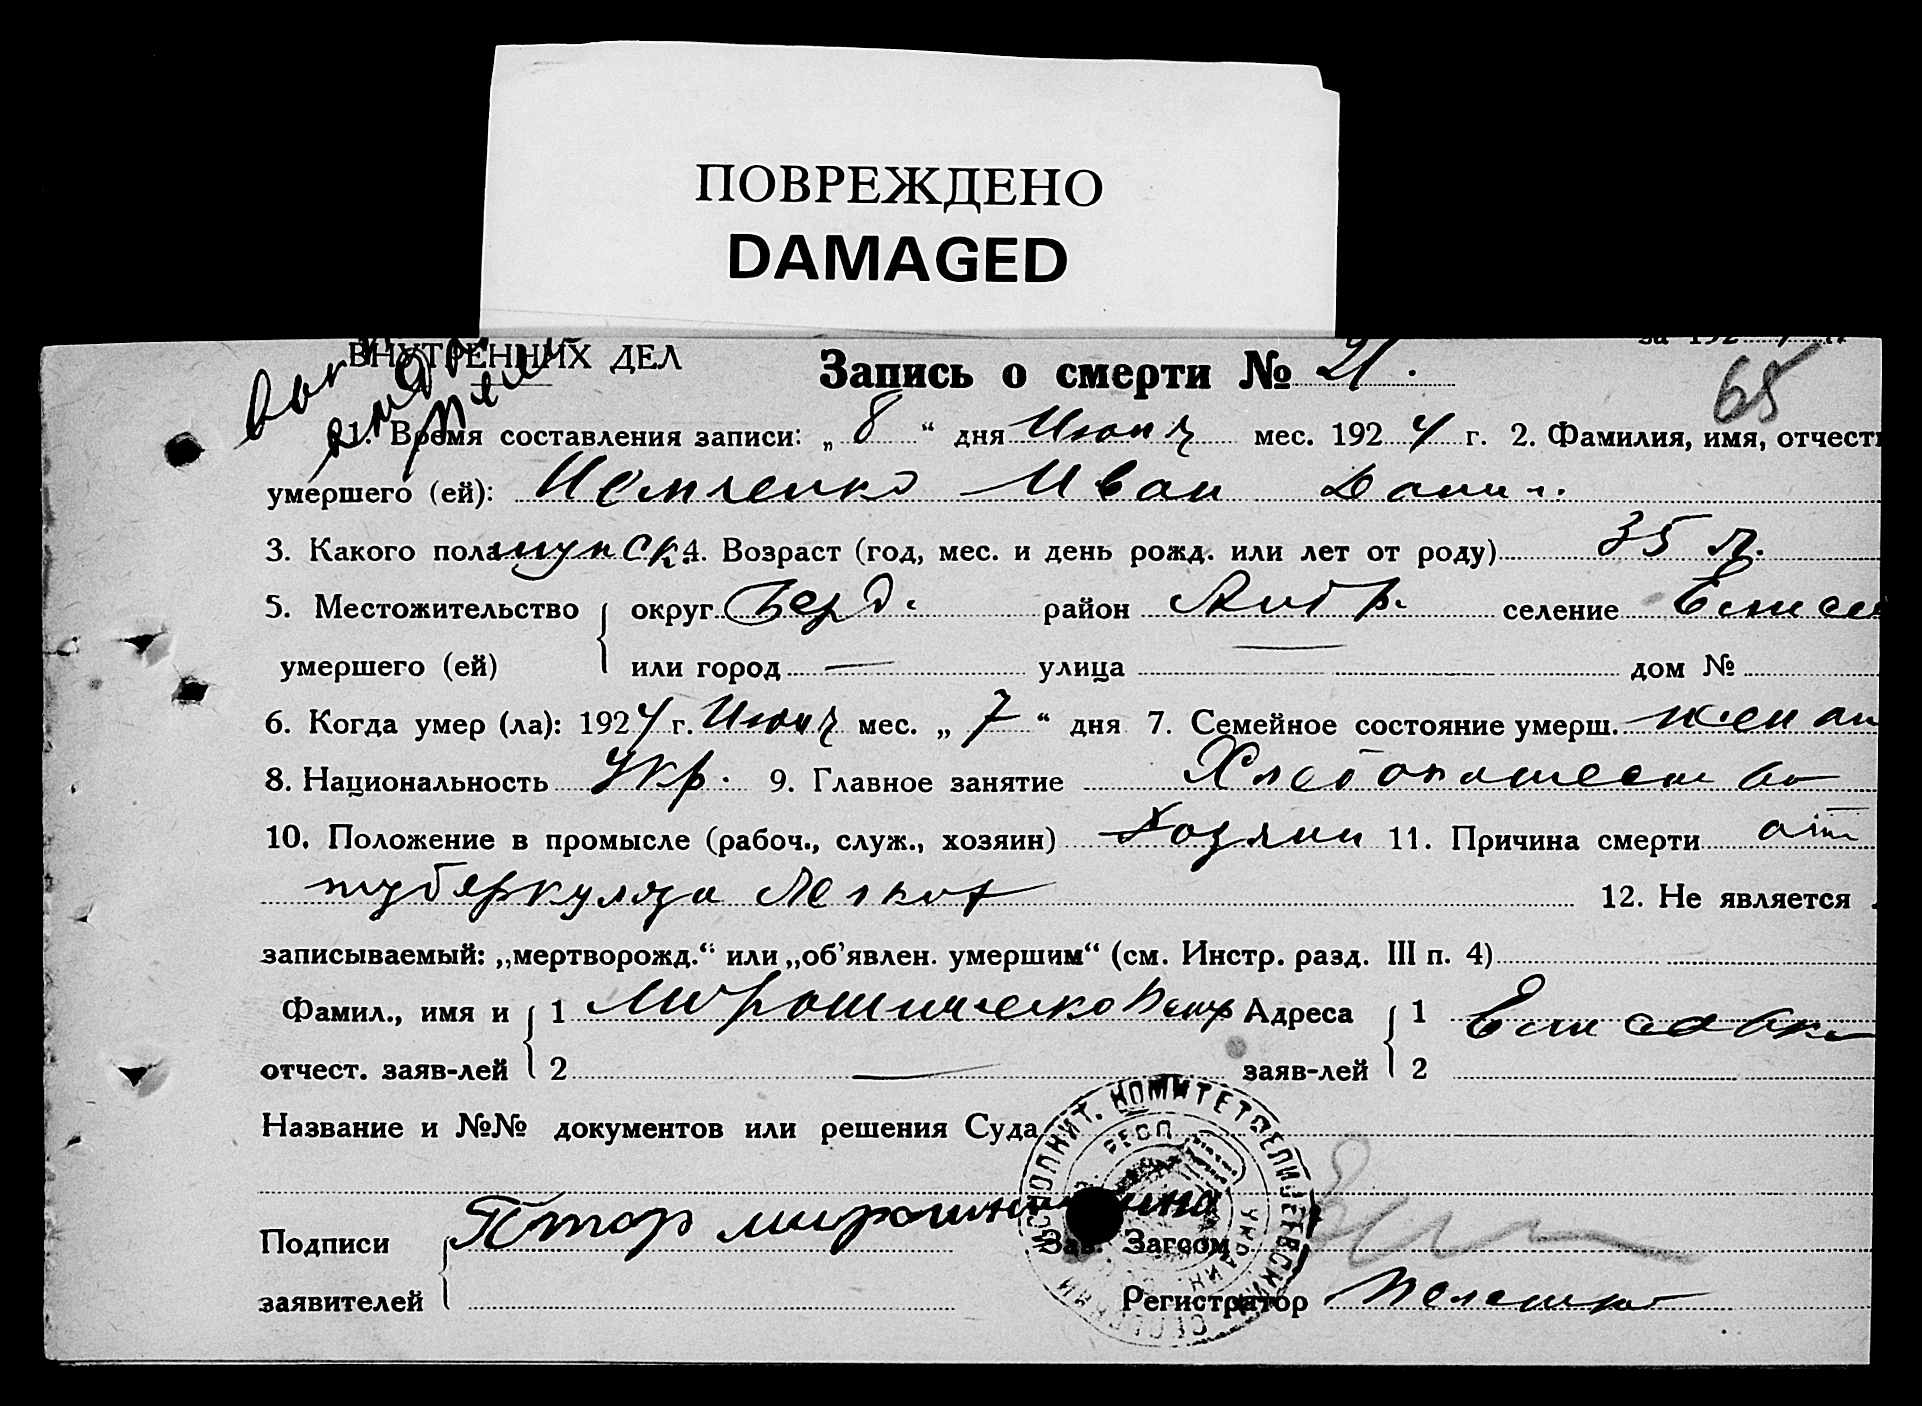 ПОВРЕЖДЕНО
DAMAGED
ВНУТРЕННИХ ДЕЛ
Запись о смерти № 21.
за 192
65
1. Время составления записи: „ 8 “ дня Июня мес. 1924 г. 2. Фамилия, имя, отчест
умершего (ей): Иван Данил.
3. Какого пола мужск. 4. Возраст (год, мес. и день рожд. или лет от роду) 35 л.
5. Местожительство округ Берд. район селение Елисе
умершего (ей) или город — улица — дом №
6. Когда умер (ла): 1924 г. Июня мес. „ 7 “ дня 7. Семейное состояние умерш. женат
8. Национальность Укр. 9. Главное занятие Хлебопашество
10. Положение в промысле (рабоч., служ., хозяин) Хозяин 11. Причина смерти от
туберкулёза Легких 12. Не является
записываемый: „мертворожд.“ или „об’явлен. умершим“ (см. Инстр. разд. III п. 4)
Фамил., имя и 1 Мирошниченко Петр Адреса 1 Елисеевка
отчест. заяв-лей 2 — заяв-лей 2
Название и №№ документов или решения Суда
ИСПОЛНИТ. КОМИТЕТ ЕЛИСЕЕВСКИЙ
Подписи Зав. Загсом
заявителей Регистратор